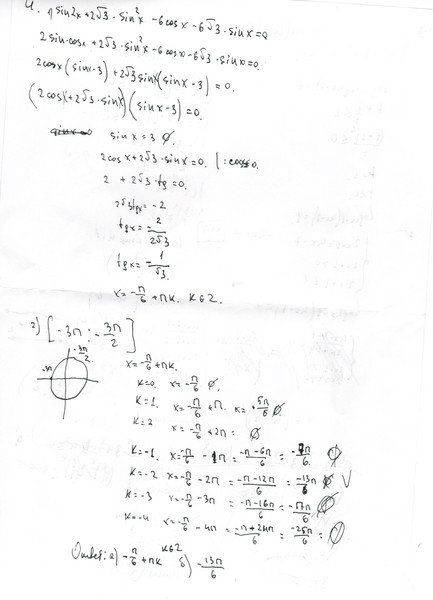 4. 1) sin2x+2√3 · sin²x - 6cosx - 6√3 · sinx = 0
2sin·cosx + 2√3 · sin²x - 6cosx - 6√3 · sinx = 0.
2cosx(sinx-3) + 2√3 sinx(sinx-3) = 0.
(2cosx+2√3·sinx)(sinx-3) = 0.
sinx = 3 ∅.
2cosx+2√3 · sinx = 0. | : cosx≠0.
2 + 2√3 · tg = 0.
2√3tgx = -2
tgx = -2/2√3
tgx = -1/√3.
x = -π/6 + πk. k∈Z.
2) [-3π ; -3π/2]
-3π/2
-3π
x = -π/6 + πk.
k=0. x = -π/6 ∅.
k=1. x = -π/6 + π. x = 5π/6 ∅.
k=2 x = -π/6 + 2π = ∅
k=-1. x = -π/6 - 1π = -π-6π/6 = -7π/6 ∅
k=-2 x = -π/6 - 2π = -π-12π/6 = -13π/6 V
k=-3 x = -π/6 - 3π = -π-18π/6 =
k=-4 x = -π/6 - 4π = -π+24π/6 = -25π/6 = ∅
Ответ: а) -π/6 + πk k∈Z б) -13π/6